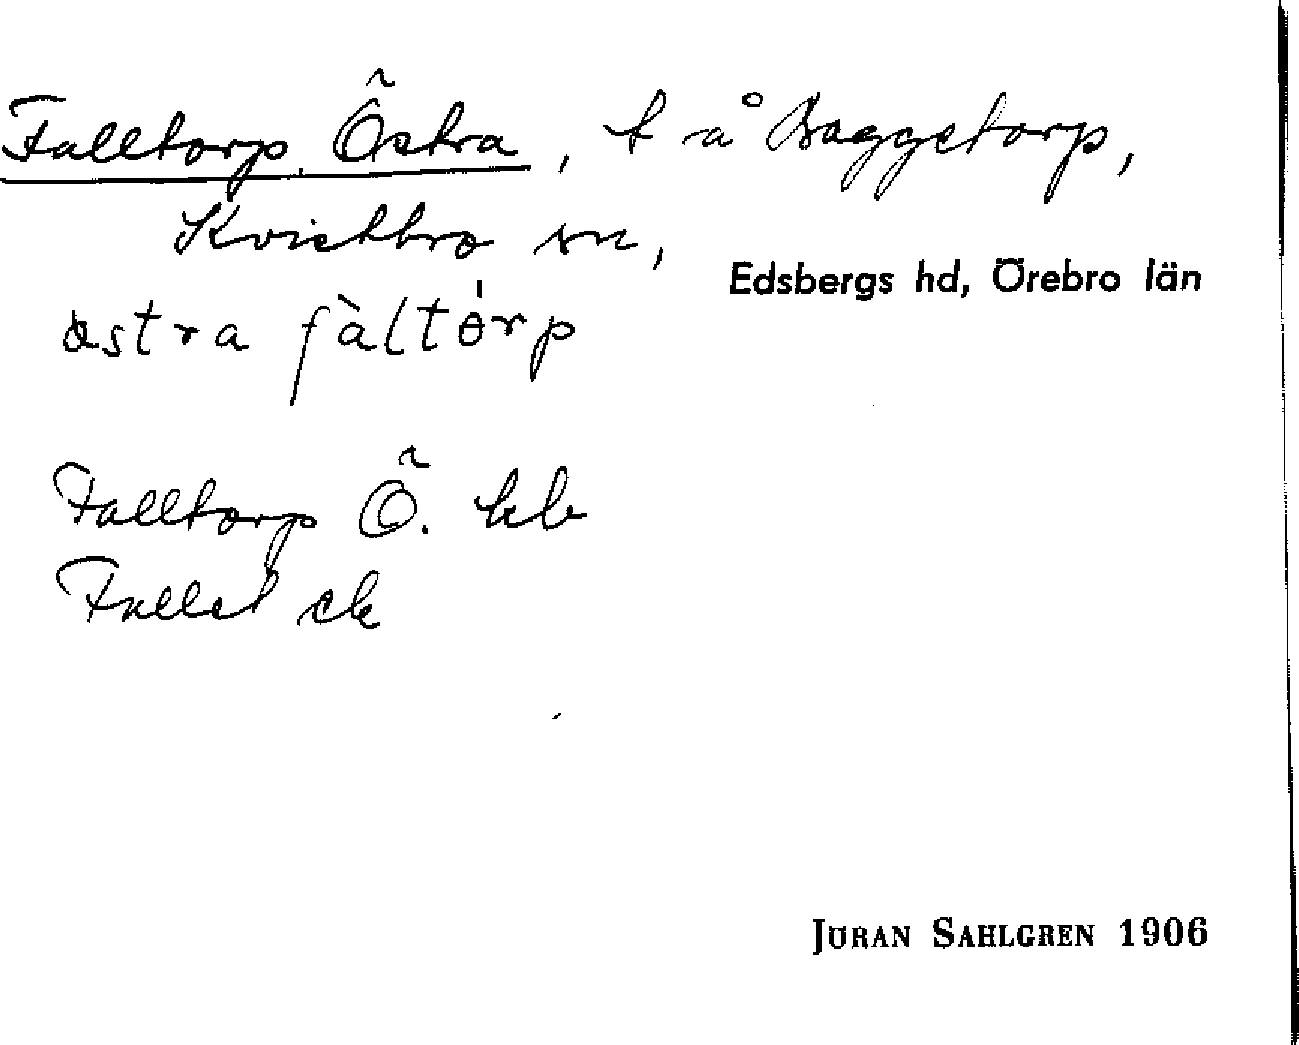 Falltorp, Östra, t å Baggetorp,
Kvistbro sn,
Edsbergs hd, Örebro län
östra fàltórp
Falltorp Ö. hb
Fallet ek
JÖRAN SAHLGREN 1906